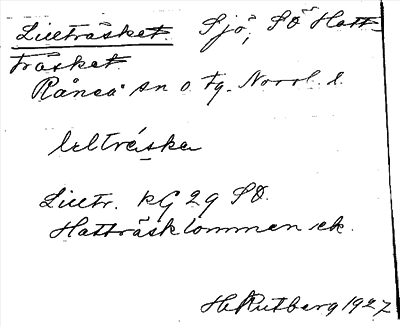 Lillträsket Sjö, SÖ Hatt-
träsket
Råneå sn o. tg. Norrb. l.
lıltrǻska
Lilltr. KG 29 SO.
Hatträsklommen ek.
H Rutberg 1927